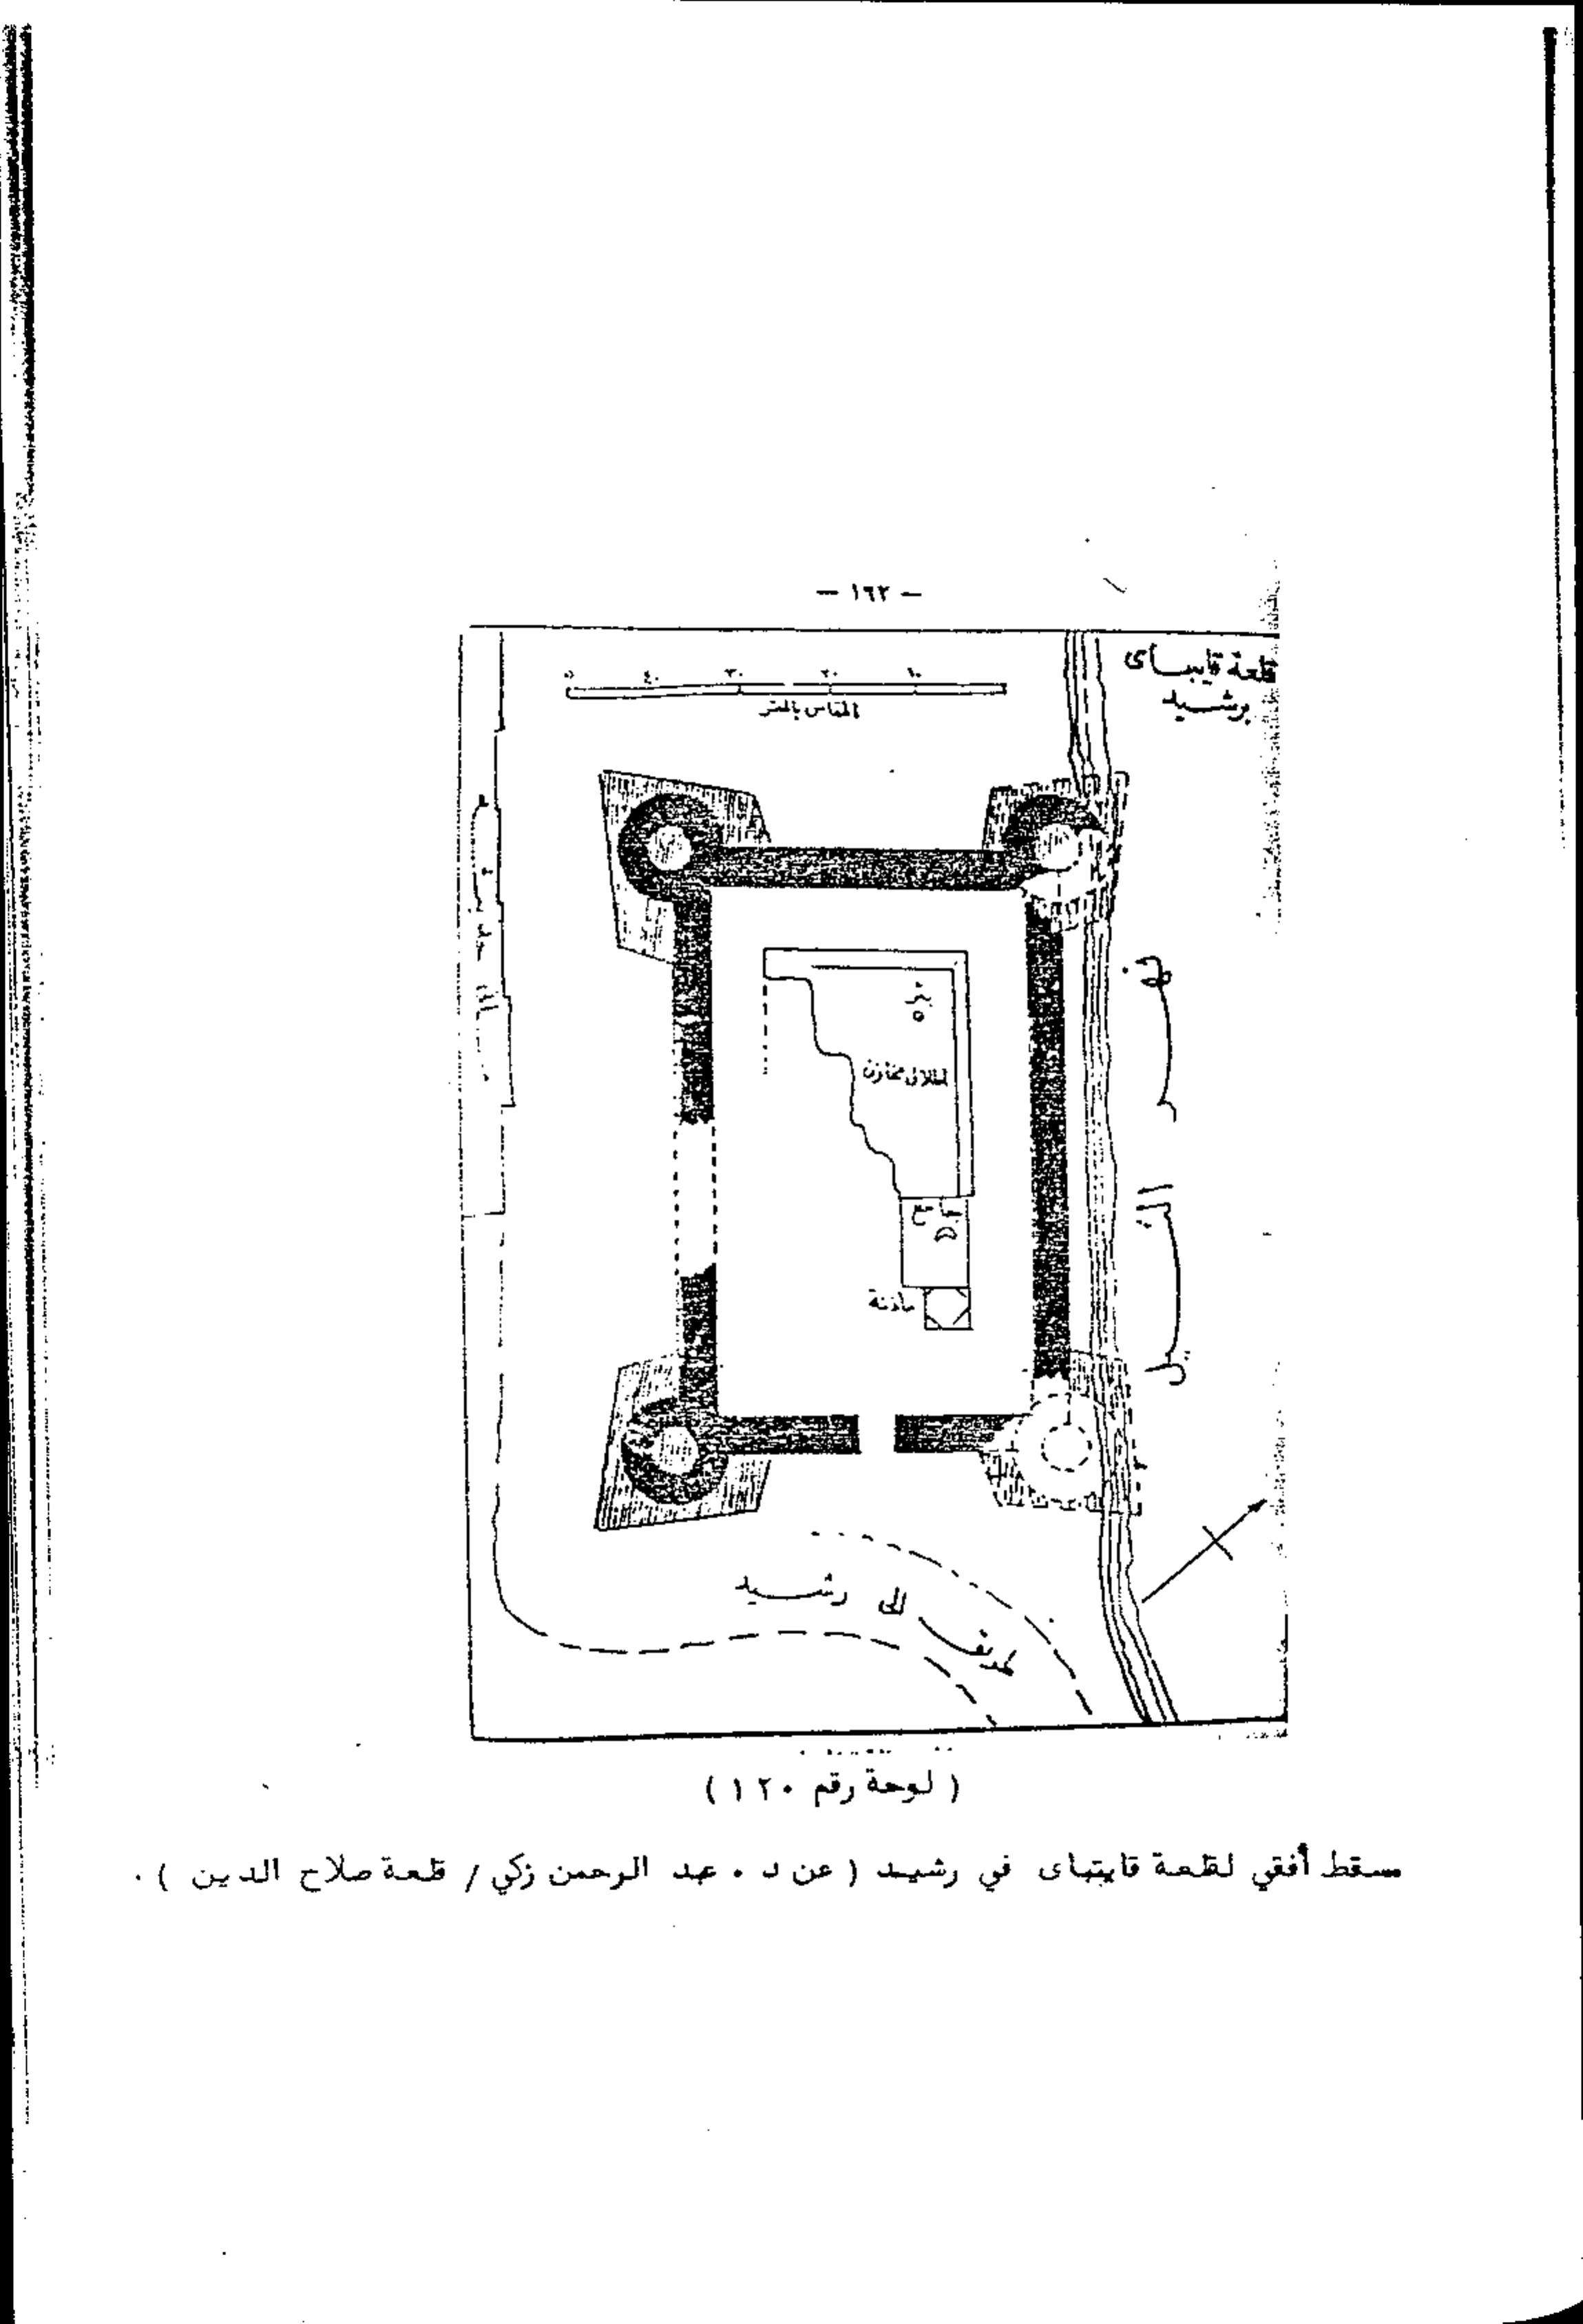 — ١٦٢ —
قلعة قايتباى
برشيد
١٠ ٢٠ ٣٠ ٤٠ ٥
المقاس بالمتر
اطلال مخازن
جامع
مأذنة
نهر النيل
طريق الى رشيد
( لوحة رقم ١٢٠ )
مسقط أفقي لقلعة قايتباى في رشيد ( عن د . عبد الرحمن زكي / قلعة صلاح الدين ) .